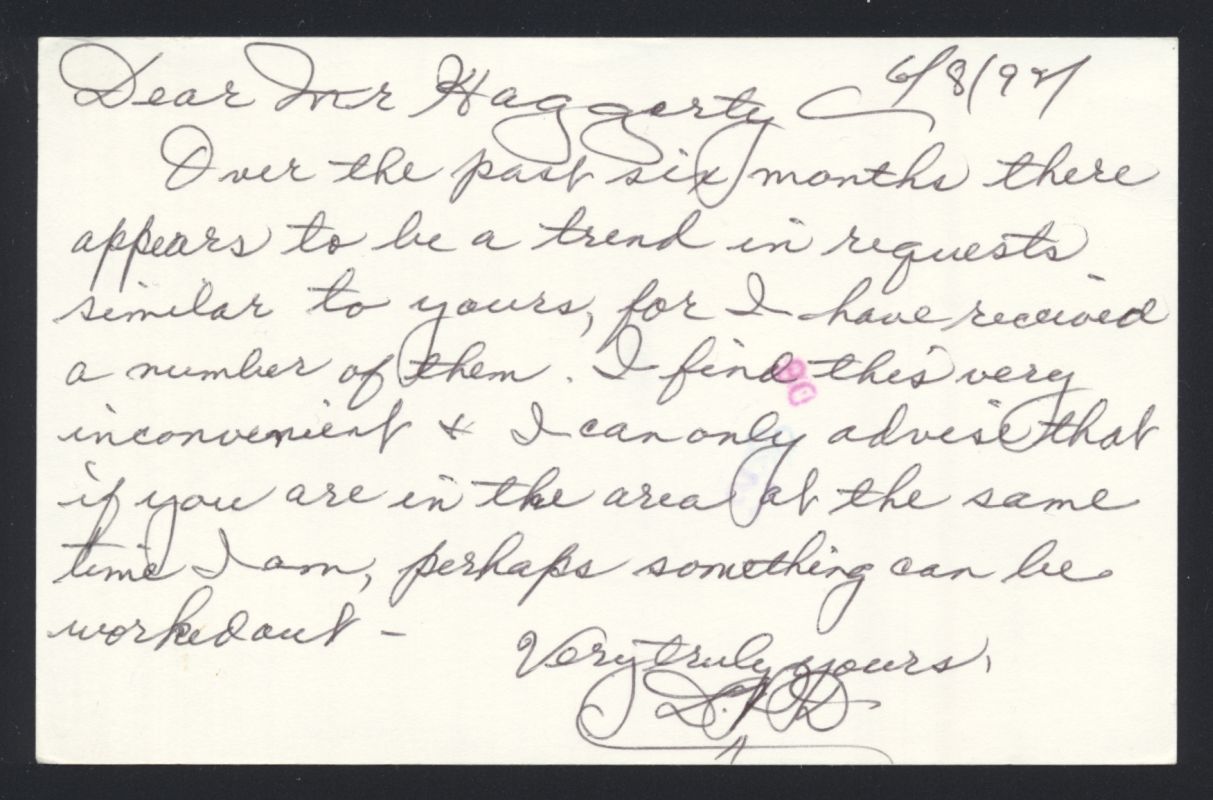 Dear Mr Haggerty 6/8/92
Over the past six months there
appears to be a trend in requests
similar to yours, for I have received
a number of them. I find this very
inconvenient & I can only advise that
if you are in the area at the same
time I am, perhaps something can be
worked out -
Very truly yours,